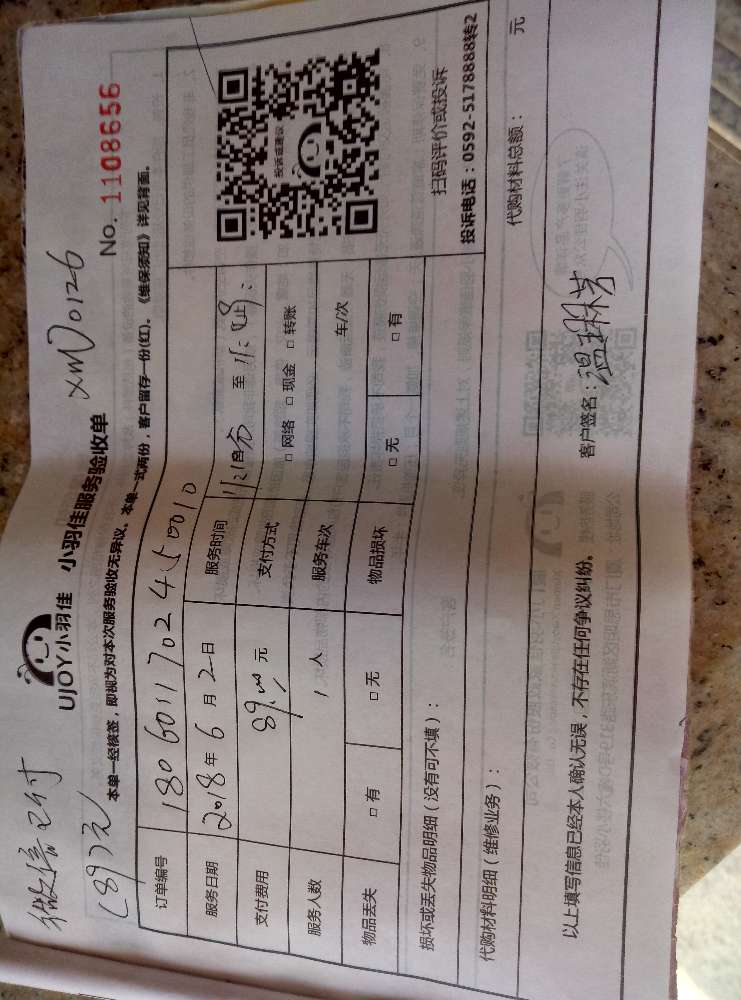 微信已付
(89)元
UJOY小羽佳 小羽佳服务验收单
XM00126
No. 1108656
本单一经核签，即视为对本次服务验收无异议。本单一式两份，客户留存一份(红)。《维保须知》详见背面。
订单编号 180601170245 0010
服务日期 2018年6月2日 服务时间 至
支付费用 89.00元 支付方式 □网络 □现金 □转账
服务人数 1人 服务车次 车/次
物品丢失 □有 □无 物品损坏 □无 □有
投诉或建议
扫码评价或投诉
投诉电话：0592-5178888转2
损坏或丢失物品明细（没有可不填）：
代购材料明细（维修业务）：
代购材料总额： 元
以上填写信息已经本人确认无误，不存在任何争议纠纷。
客户签名：温琳芳